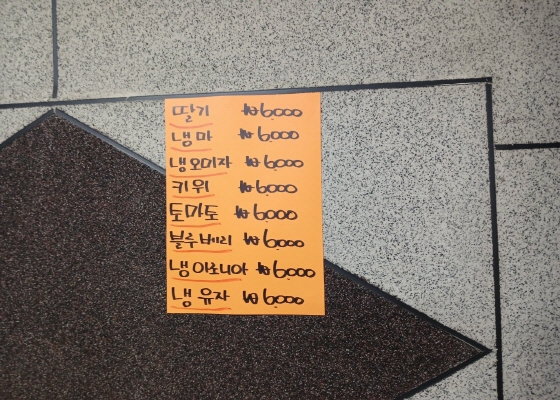 딸기 ₩6,000
냉마 ₩6,000
냉오미자 ₩6,000
키위 ₩6,000
토마토 ₩6,000
블루베리 ₩6,000
냉아로니아 ₩6,000
냉유자 ₩6,000